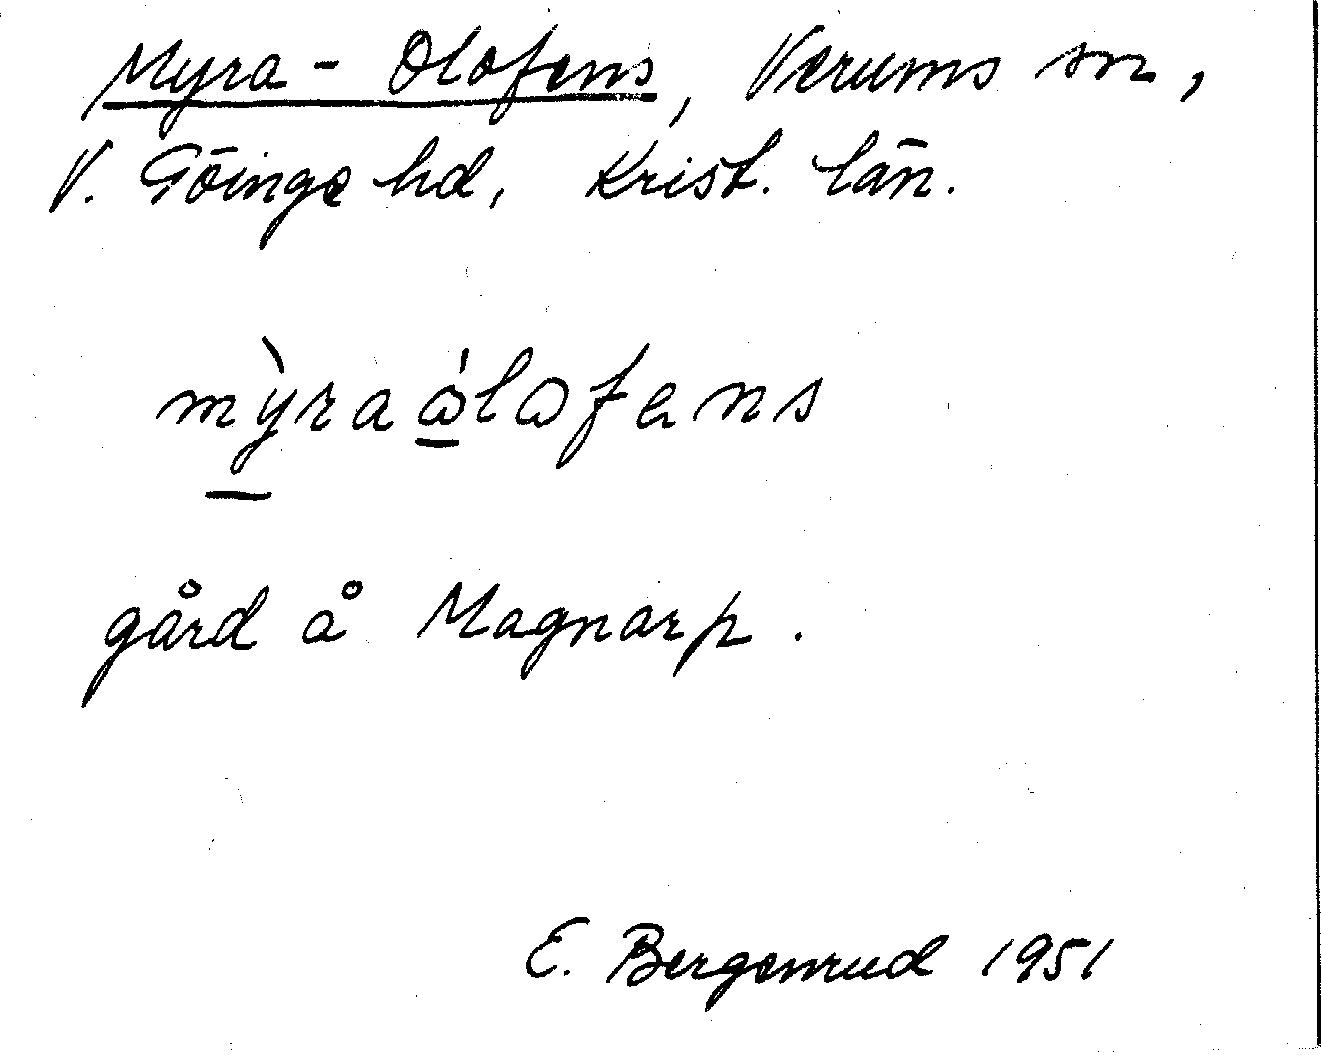 Myra-Olofens, Verums sn,
V. Göinge hd, Krist. län.
mỳraɷ́lɷfens
gård å Magnarp.
E. Bergenrud 1951